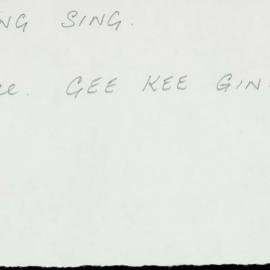 NG SING.
GEE KEE GIN